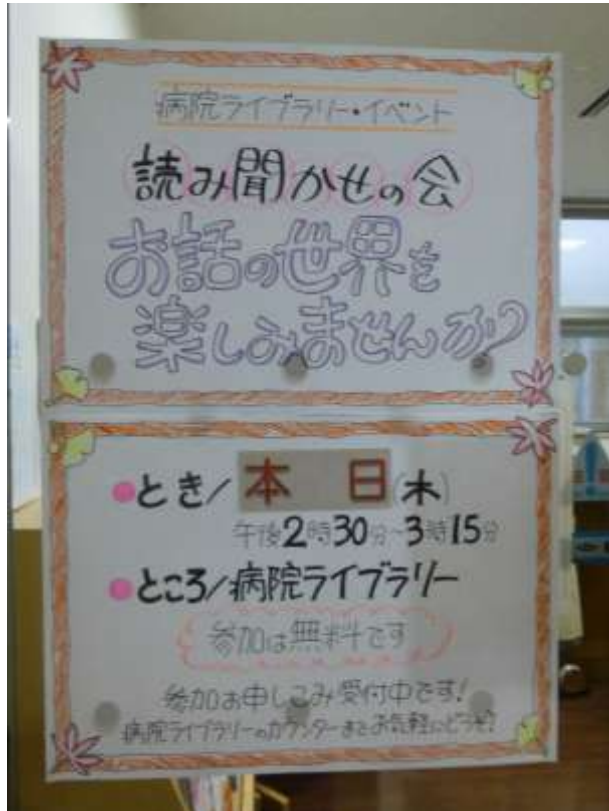 病院ライブラリー・イベント
読み聞かせの会
お話の世界を
楽しみませんか?
●とき/本日(木)
午後2時30分~3時15分
●ところ/病院ライブラリー
参加は無料です
参加お申しこみ受付中です!
病院ライブラリーのカウンターまでお気軽にどうぞ!